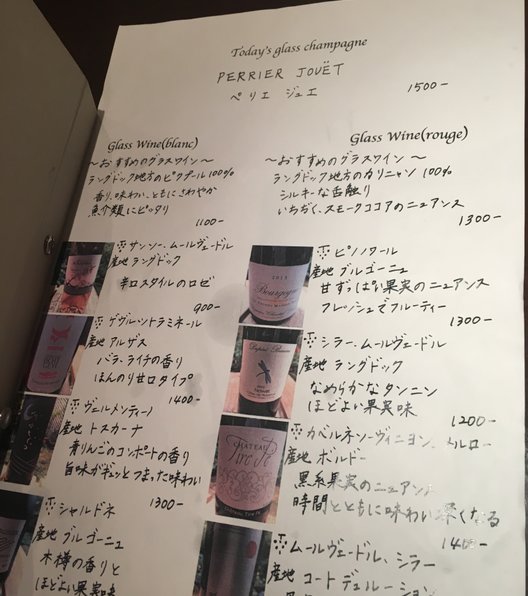 Today's glass champagne
PERRIER JOUËT
ペリエ ジュエ
1500-
Glass Wine(blanc)
〜おすすめのグラスワイン〜
ラングドック地方のピクプール100%
香り、味わい、ともにさわやか
魚介類にピッタリ
1100-
サンソー、ムールヴェードル
産地 ラングドック
辛口スタイルのロゼ
900-
ゲヴルットラミネール
産地 アルザス
バラ、ライチの香り
ほんのり甘口タイプ
1400-
ヴェルメンティーノ
産地 トスカーナ
青りんごのコンポートの香り
旨味がギュッとつまった味わい
1300-
シャルドネ
産地 ブルゴーニュ
木樽の香りと
ほどよい果実味
Glass Wine(rouge)
〜おすすめのグラスワイン〜
ラングドック地方のカリニャン 100%
シルキーな舌触り
いちぢく、スモークココアのニュアンス
1300-
2013
Bourgogne
ピノノワール
産地 ブルゴーニュ
甘ずっぱい果実のニュアンス
フレッシュでフルーティー
1300-
シラー、ムールヴェードル
産地 ラングドック
なめらかなタンニン
ほどよい果実味
1200-
CHATEAU
Tire Pé
カベルネソーヴィニヨン、メルロー
産地 ボルドー
黒系果実のニュアンス
時間とともに味わい深くなる
1400-
ムールヴェードル、シラー
産地 コートデュローション